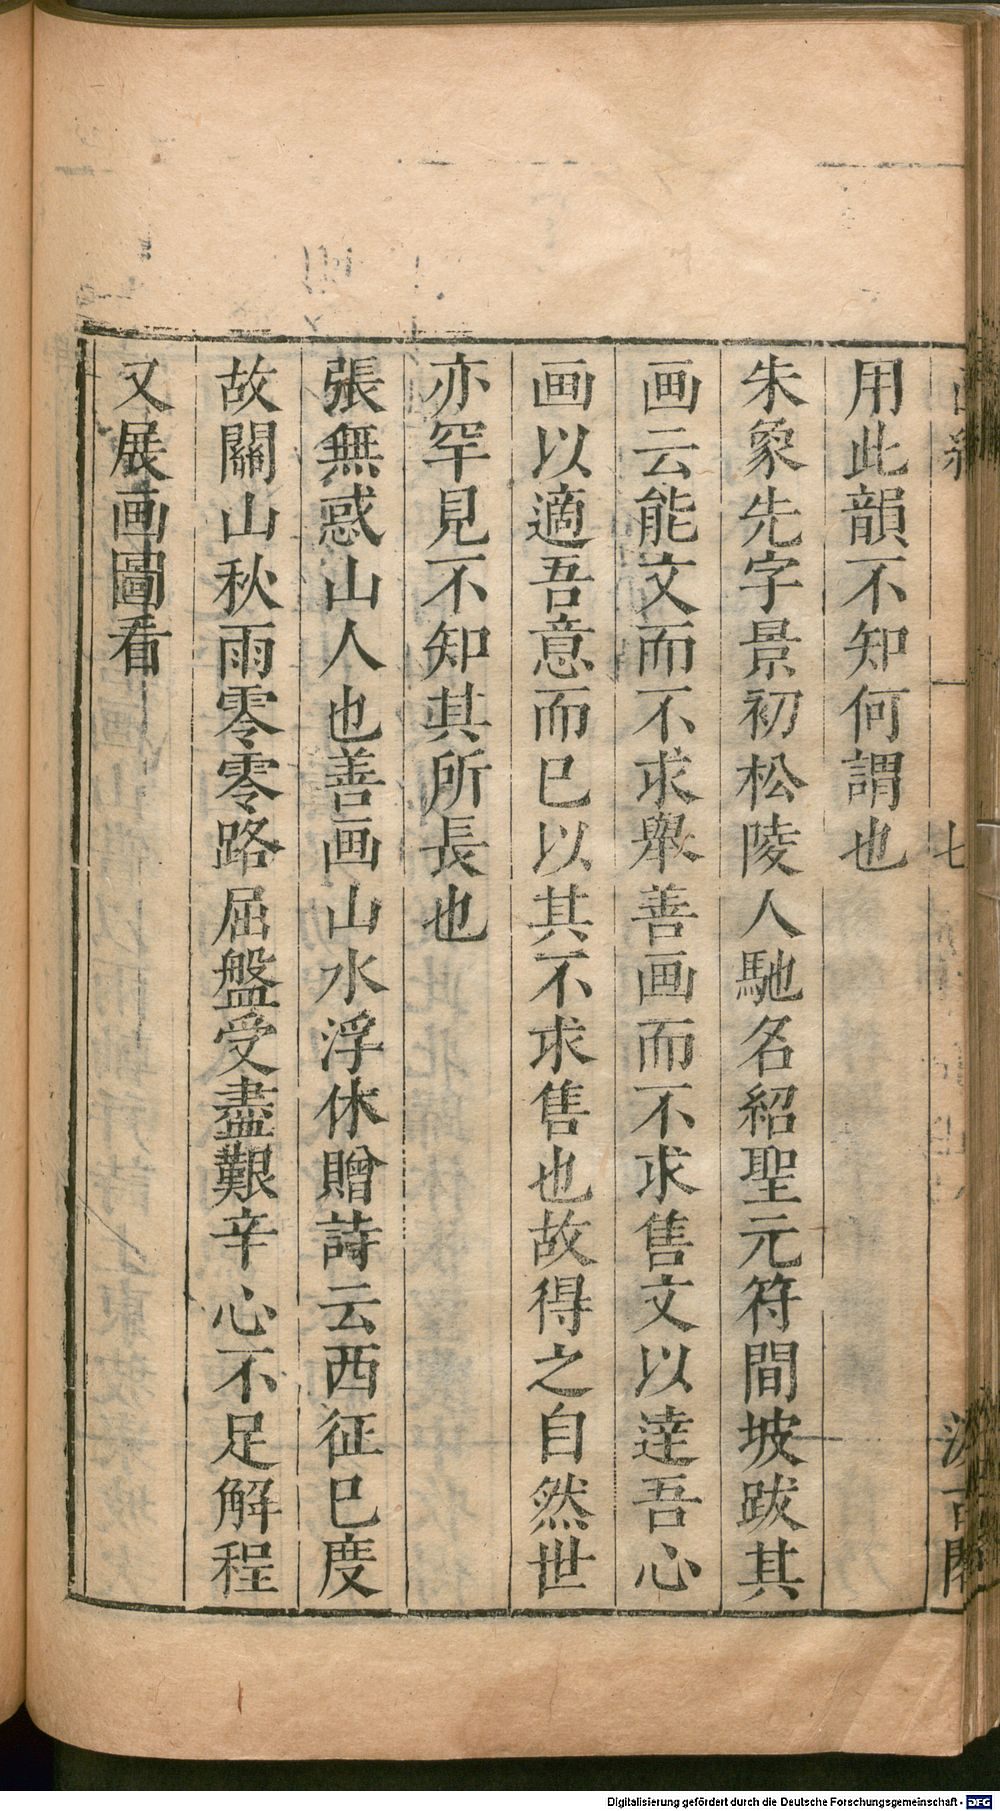 用此韻不知何謂也
朱象先字景初松陵人馳名紹聖元符間坡跋其
画云能文而不求舉善画而不求售文以達吾心
画以適吾意而已以其不求售也故得之自然世
亦罕見不知其所長也
張無惑山人也善画山水浮休贈詩云西征已度
故關山秋雨零零路屈盤受盡艱辛心不足解程
又展画圖看
七
Digitalisierung gefördert durch die Deutsche Forschungsgemeinschaft - DFG